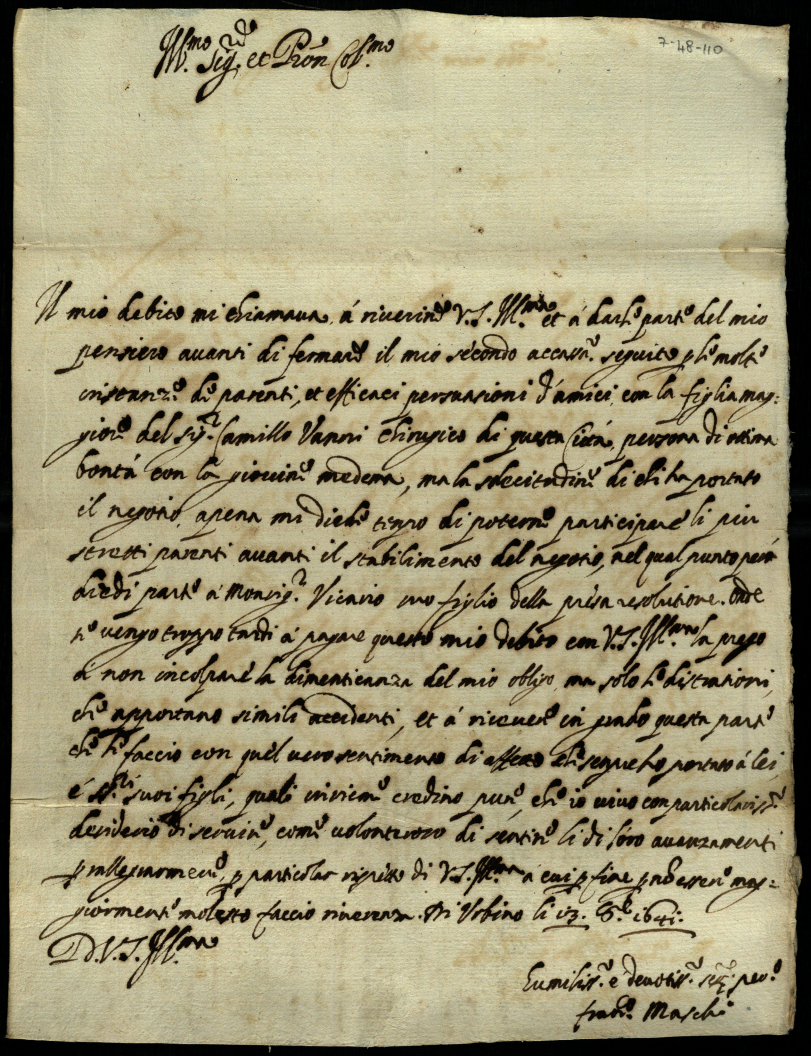 7-48-110
Ill.mo Sig.re et Pron Col.mo
Il mio debito mi chiamava à riverire V.S. Ill.ma et à darle parte del mio
pensiero avanti di fermare il mio secondo accass.to seguito p le molte
instanze de parenti, et efficaci persuasioni d'amici, con la figlia mag=
giore del Sig.r Camillo Vanni Chirugico di questa Città, persona di ottima
bontà con la giovine medema, ma la solecitudine di chi ha portato
il negotio, apena mi diede tempo di poterne participare li più
stretti parenti avanti il stabilimento del negotio, nel qual punto però
diedi parte à Monsig.r Vicario suo figlio della presa resolutione. Onde
se vengo troppo tardi à pagare questo mio debito con V.S. Ill.ma la prego
à non incolpare la dimenticanza del mio obligo, ma solo le distrationi,
che apportano simili accidenti, et à ricevere in grado questa parte
che le faccio con quel vero sentimento di affetto che sempre ho portato à lei,
e SS.ri suoi figli, quali insieme credino pure, che io vivo con particolariss.o
desiderio di servire, come volonteroso di sentire li di loro avanzamenti
p rallegrarmene, p particolar rispetto di V.S. Ill.ma à cui p fine p nō essere mag=
giormente molesto faccio riverenza. Di Urbino li 13. 8.e 1641.
D.V.S. Ill.ma
Humiliss.o e devotiss.o se.re per.o
Maschi